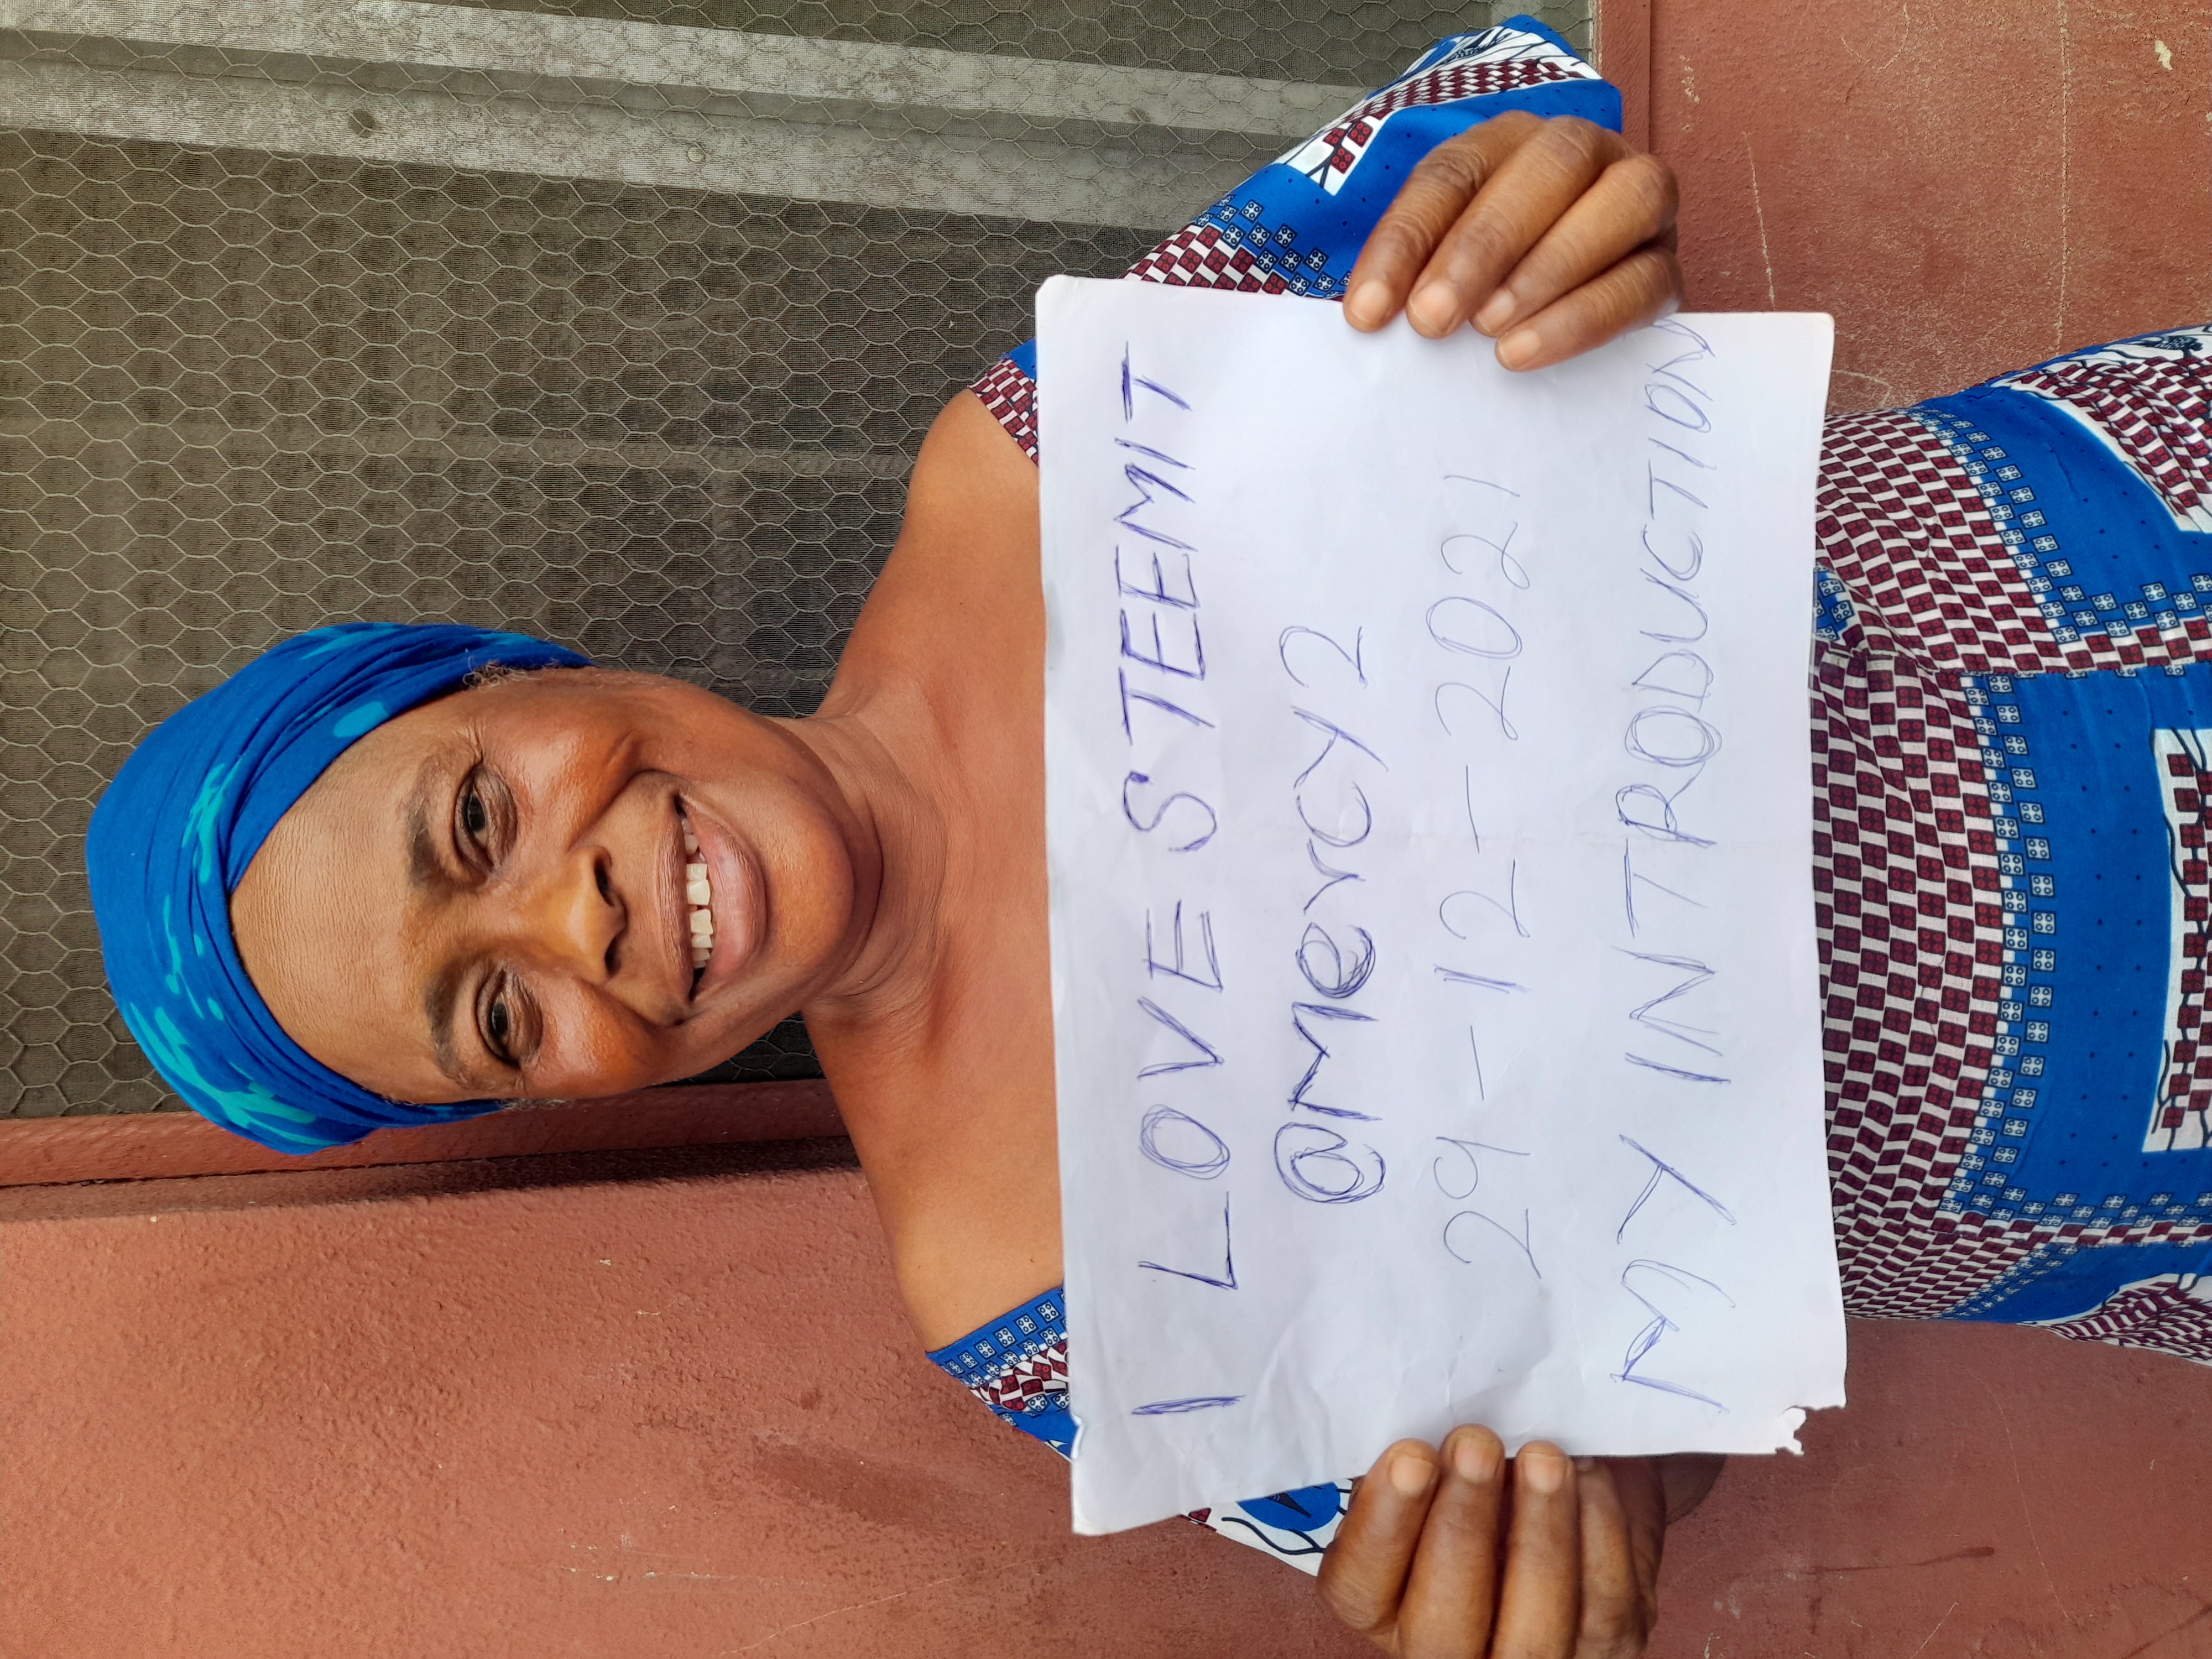 I LOVE STEEMIT
@Mercy2
29-12-2021
MY INTRODUCTION